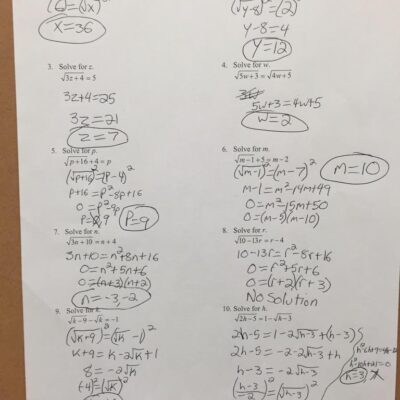 (6)²=(√x)²
x=36
(√y-8)²=(2)²
y-8=4
y=12
3. Solve for z.
√3z+4 = 5
3z+4=25
3z=21
z=7
4. Solve for w.
√5w+3 = √4w+5
5w+3=4w+5
w=2
5. Solve for p.
√p+16+4 = p
(√p+16)²=(p-4)²
p+16=p²-8p+16
0=p²-9p
p=0,9 p=9
6. Solve for m.
√m-1+5 = m-2
(√m-1)²=(m-7)²
m-1=m²-14m+49
0=m²-15m+50
0=(m-5)(m-10)
m=10
7. Solve for n.
√3n+10 = n+4
3n+10=n²+8n+16
0=n²+5n+6
0=(n+3)(n+2)
n=-3,-2
8. Solve for r.
√10-13r = r-4
10-13r=r²-8r+16
0=r²+5r+6
0=(r+2)(r+3)
No Solution
9. Solve for k.
√k-9-√k = -1
(√k+9)²=(√k-1)²
k+9=k-2√k+1
8=-2√k
(-4)²=(√k)²
10. Solve for h.
√2h-5 = 1-√h-3
2h-5=1-2√h-3+(h-3)
2h-5=-2-2√h-3+h
h-3=-2√h-3
(h-3/-2)²=(√h-3)²
h=3